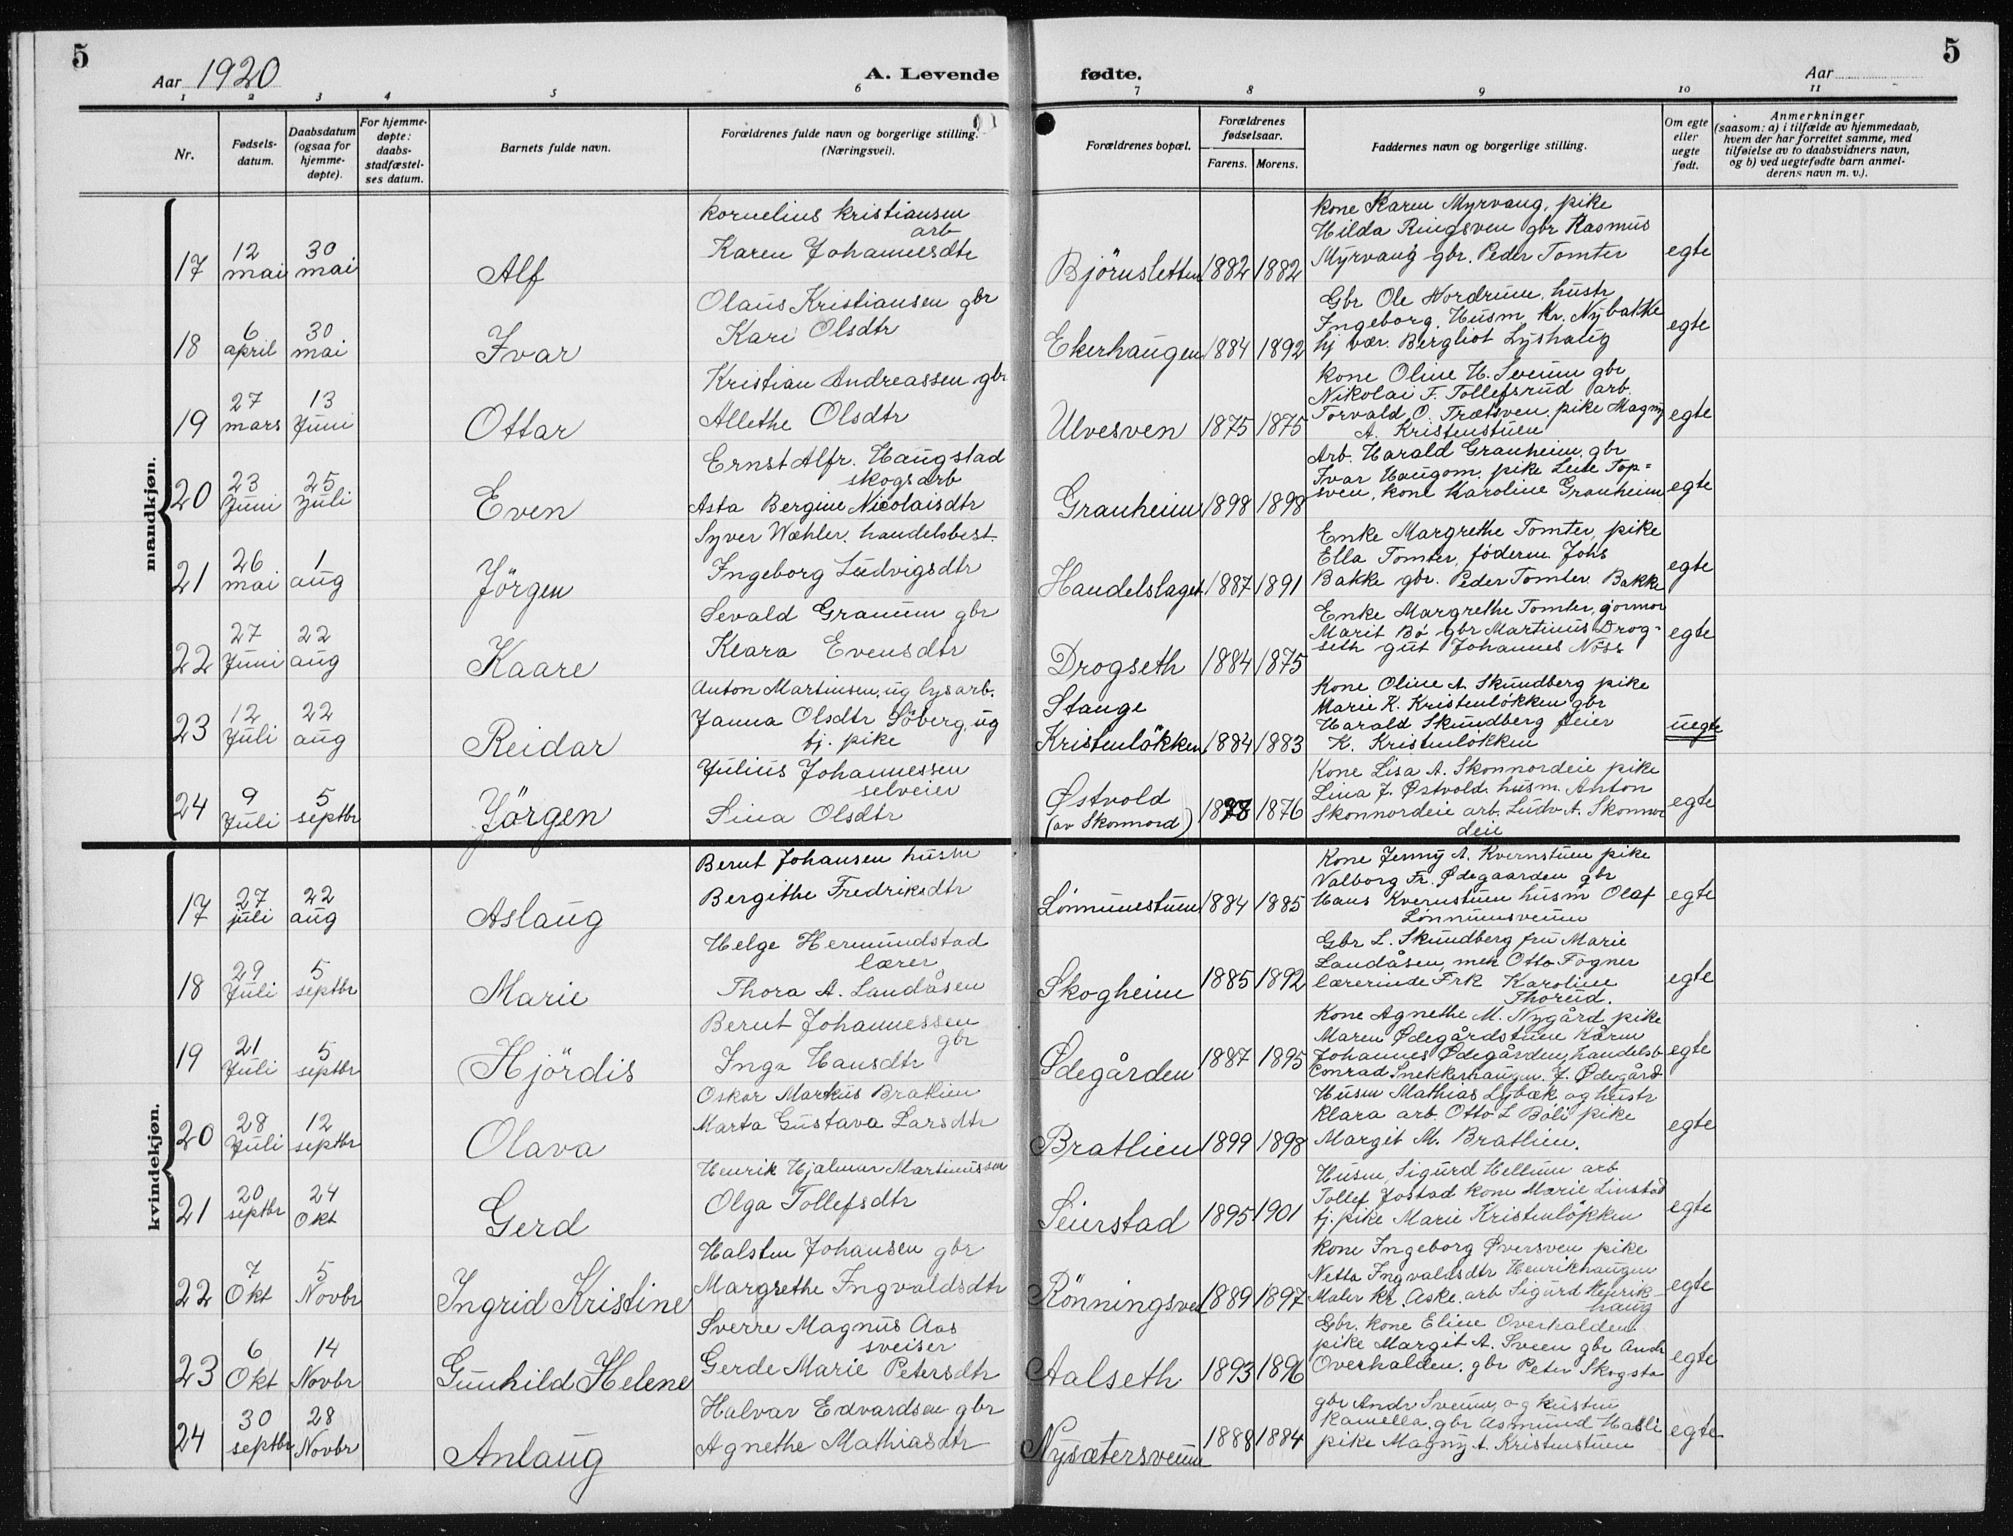 5
5
Aar 1920
A. Levende fødte.
Aar
1 2 3 4 5 6 7 8 9 10 11
Nr.
Fødsels-
datum.
Daabsdatum
(ogsaa for
hjemme-
døpte).
For hjemme-
døpte:
daabs-
stadfæstel-
ses datum.
Barnets fulde navn.
Forældrenes fulde navn og borgerlige stilling.
(Næringsvei).
Forældrenes bopæl.
Forældrenes
fødselsaar.
Farens. Morens.
Faddernes navn og borgerlige stilling.
Om egte
eller
uegte
født.
Anmerkninger
(saasom: a) i tilfælde av hjemmedaab,
hvem der har forrettet samme, med
tilføielse av to daabsvidners navn,
og b) ved uegtefødte barn anmel-
derens navn m. v.).
mandkjøn.
17
12
mai
30
mai
Alf
Kornelius Kristiansen
arb
Karen Johannesdtr
Björnsletten 1882 1882
Kone Karen Myrvang, pike
Hilda Ringsven gbr Rasmus
Myrvang gbr. Peder Tomter
egte
18
6
april
30
mai
Ivar
Olaus Kristiansen gbr
Kari Olsdtr
Ekerhaugen 1884 1892
Gbr Ole Nordrum, hustr
Ingeborg, Husm Kr. Nybakke
hj vær. Bergliot Lyshaug
egte
19
27
mars
13
Juni
Ottar
Kristian Andreassen gbr
Allethe Olsdtr
Ulvesven 1875 1875
Kone Oline H. Sveum gbr
Nikolai F. Tollefsrud arb.
Torvald O. Trætsven, pike Magny
A. Kristenstuen
egte
20
23
Juni
25
Juli
Even
Ernst Alfr. Haugstad
skogsarb
Asta Bergine Nicolaisdtr
Granheim 1898 1898
Arb. Harald Granheim, gbr
Ivar Haugom, pike Lene Top=
sven, kone Karoline Granheim
egte
21
26
mai
1
aug
Jörgen
Syver Wæhler, handelsbest.
Ingeborg Ludvigsdtr
Handelslaget 1887 1891
Enke Margrethe Tomter, pike
Ella Tomter, föderm Johs
Bakke gbr. Peder Tomter Bakke
egte
22
27
Juni
22
aug
Kaare
Sevald Granum gbr
Klara Evensdtr
Drogseth 1884 1875
Enke Margrethe Tomter, jormor
Marit Bø gbr Martinus Drog-
seth gut Johannes Noss
egte
23
12
Juli
22
aug
Reidar
Anton Martinsen, ug lysarb.
Janna Olsdtr Söberg, ug
tj. pike
Stange
Kristenlökken 1884 1883
Kone Oline A. Skundberg pike
Marie K. Kristenlökken gbr
Harald Skundberg feier
K. Kristenlökken
uegte
24
9
Juli
5
septbr
Jörgen
Julius Johannessen
selveier
Sina Olsdtr
Østvold
(av Skonnord) 1878 1876
Kone Lisa A. Skonnordeie pike
Lina J. Østvold, husm. Anton
Skonnordeie arb. Ludv A. Skonnor
deie
egte
kvindekjøn.
17
27
juli
22
aug
Aslaug
Bernt Johansen husm
Bergithe Fredriksdtr
Lønnumstuen 1884 1885
Kone Jenny A. Kvernstuen pike
Valborg Fr. Ødegaarden gbr
Hans Kvernstuen husm Olaf
Lønnumsveum
egte
18
29
Juli
5
septbr
Marie
Helge Hermundstad
lærer
Thora A. Landåsen
Skogheim 1885 1892
Gbr L. Skundberg fru Marie
Landåsen, mek Otto Fogner
lærerinde Frk Karoline
Thorud.
egte
19
21
Juli
5
septbr
Hjördis
Bernt Johannessen
gbr
Inga Hansdtr
Ødegården 1887 1895
Kone Agnethe M. Nygård pike
Maren Ødegårdstuen Kårm
Johannes Ødegården, handelsb
Conrad Snekkerhaugen J. Ødegård
egte
20
28
Juli
12
septbr
Olava
Oskar Markus Bratlien
Marta Gustava Larsdtr
Bratlien 1899 1898
Husm Mathias Lybæk og hustr
Klara arb. Otto L Böli pike
Margit M. Bratlien.
egte
21
20
septbr
24
Okt
Gerd
Henrik Hjalmar Martinussen
Olga Tollefsdtr
Seierstad 1895 1901
Husm, Sigurd Hellum arb
Tollef Jostad kone Marie Linstad
tj. pike Marie Kristenlökken
egte
22
7
Okt
5
Novbr
Ingrid Kristine
Halsten Johansen gbr
Margrethe Ingvaldsdtr
Rönningsven 1889 1897
Kone Ingeborg Øversven pike
Netta Ingvaldsdtr Henrikhaugen
Maler Kr. Aske. arb Sigurd Henrik-
haug
egte
23
6
Okt
14
Novbr
Gunhild Helene
Sverre Magnus Aas
sveiser
Gerde Marie Petersdtr
Aalseth 1893 1896
Gbr. kone Eline Overhalden
pike Margit A. Sveen gbr Andr
Overhalden, gbr Peter Skogsta
egte
24
30
septbr
28
Novbr
Anlaug
Halvar Edvardsen gbr
Agnethe Mathiasdtr
Nysætersveum 1888 1884
gbr Andr Sveum, og hustru
Kamella, gbr Asmund Hasli
pike Magny A. Kristenstuen
egte